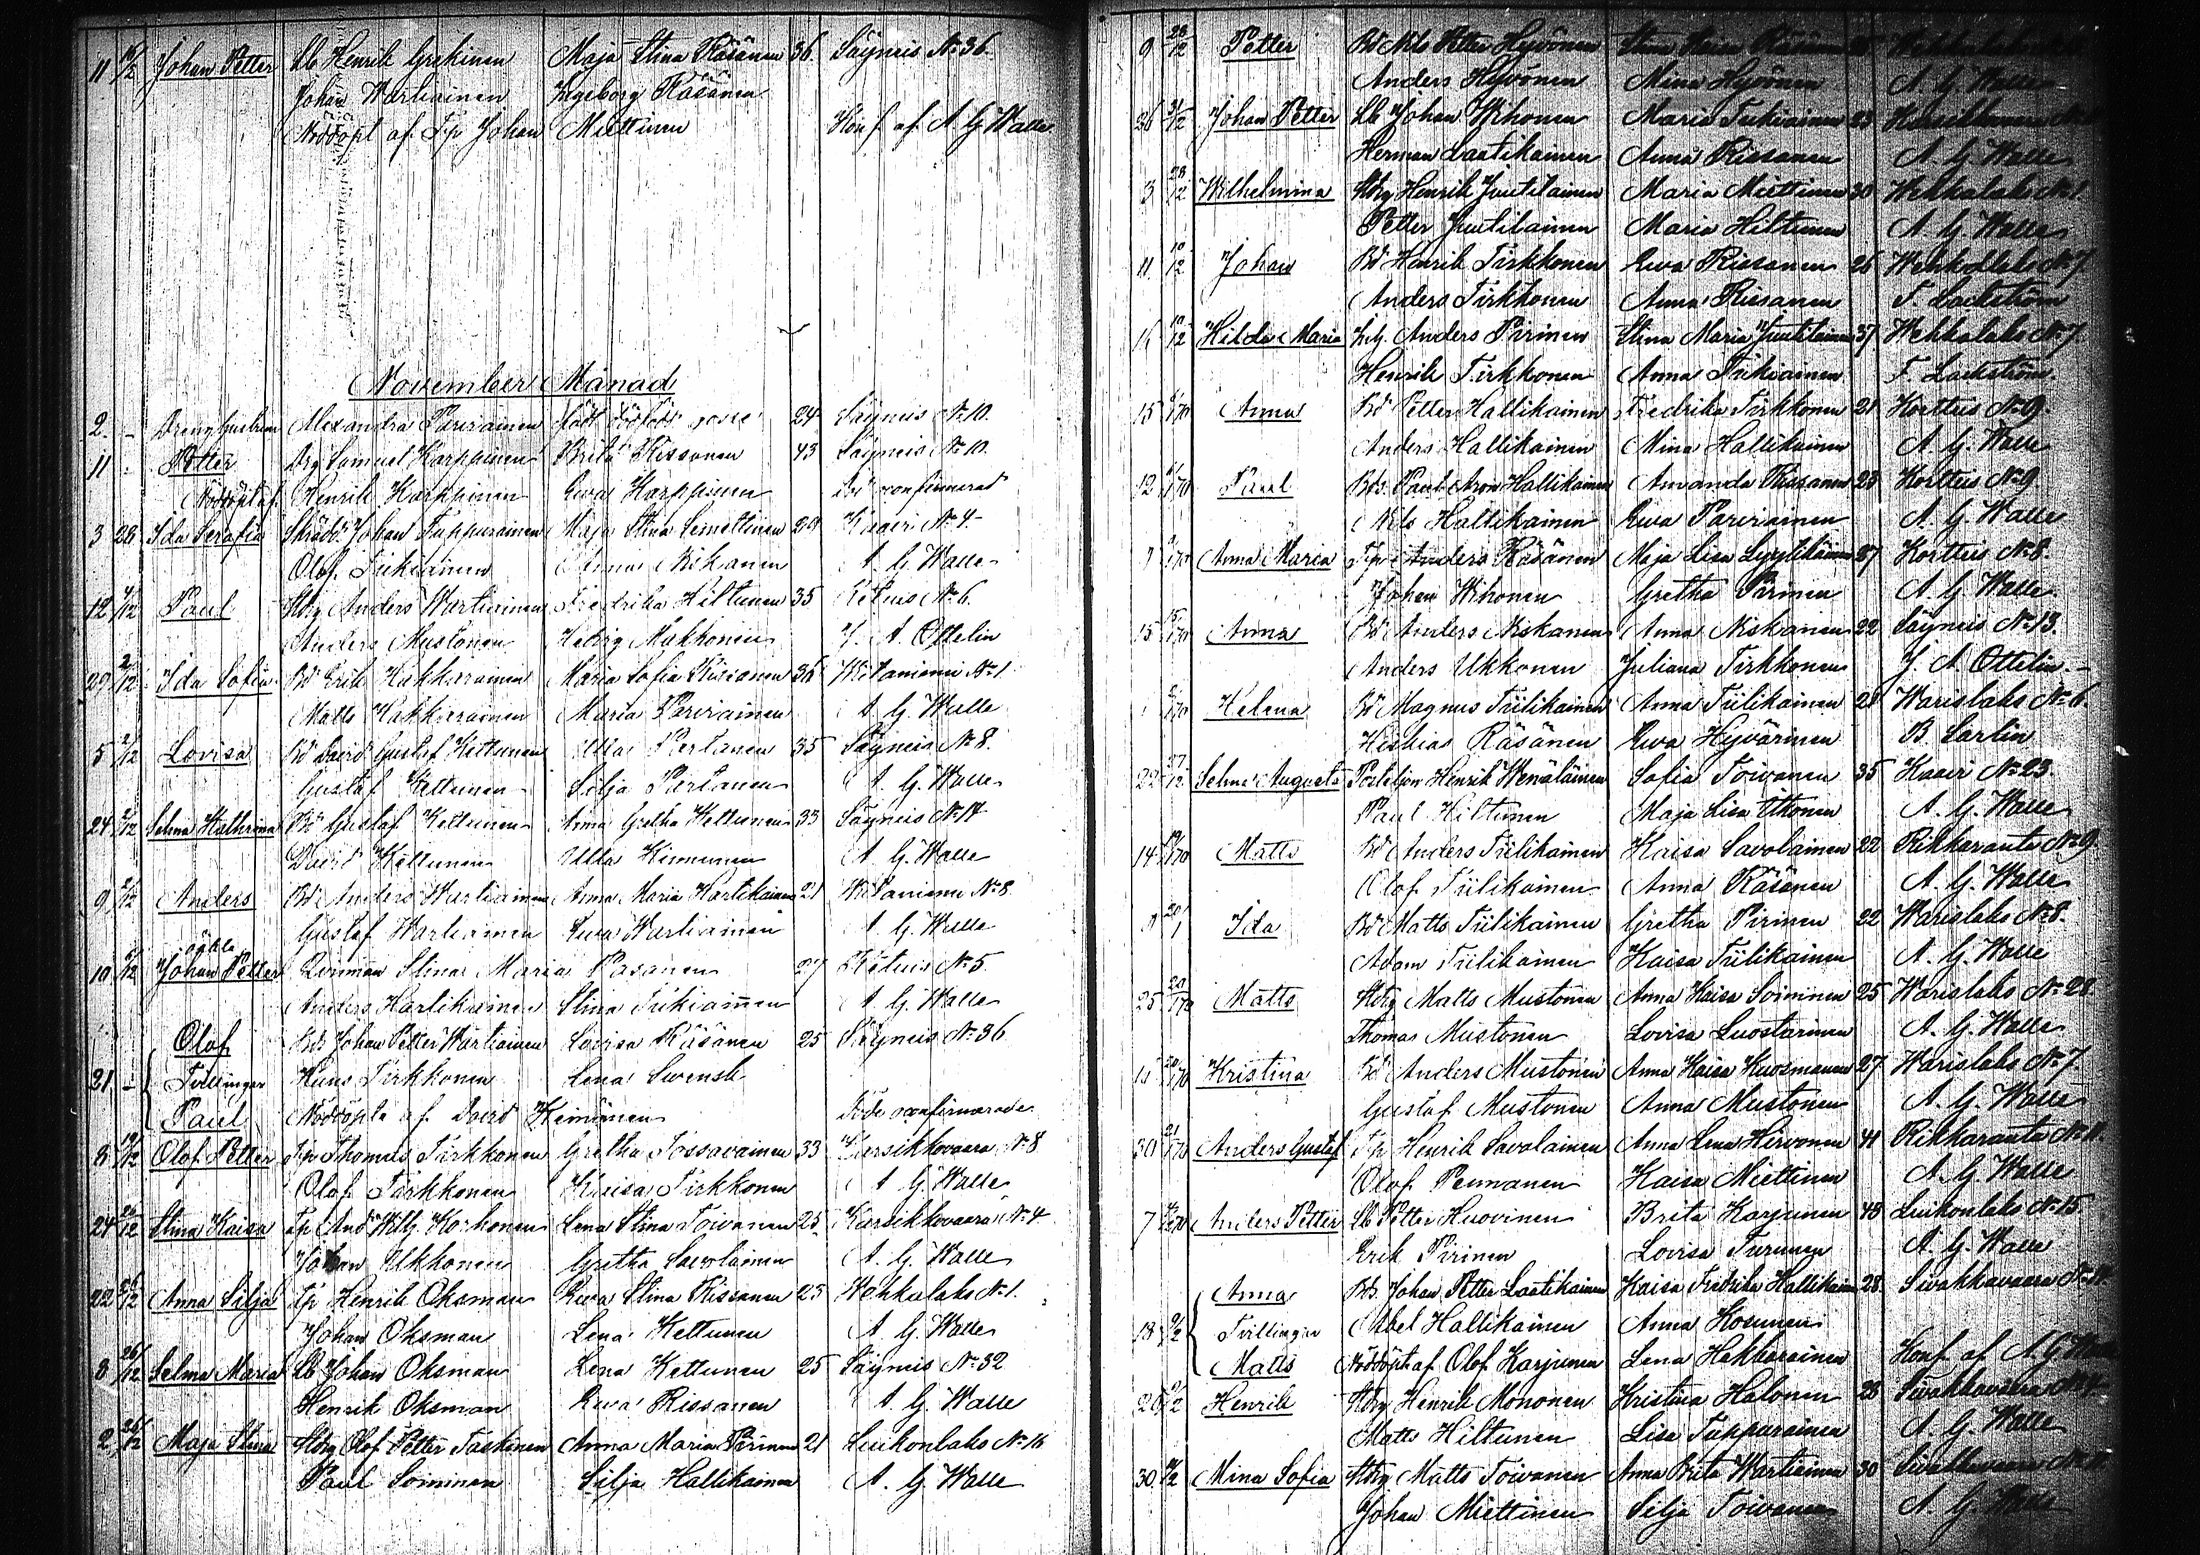 11 Johan Petter Lb Henrik Grekinen Maja Stina Räsänen 36. Säyneis No 36.
Johan Wartiainen Ingeborg Räsänen
Nöddöpt af Tp Johan Miettinen Konf af A G Walle
November Månad
2. - Drenghustrun Alexandra Parviainen född dödfödt gosse 24 Säyneis No 10.
11 - Petter Drg Samuel Karppinen Brita Rissanen 43 Säyneis No 10.
Nöddöpt af Henrik Karppinen Ewa Karppinen
3 28 Ida Serafia Skrädd. Johan Tuppurainen Maja Stina Lemettinen 29 Kaavi No 4.
Olof Tukiainen Anna Niskanen A. G. Walle
12 4/12 Paul Stbg Anders Wartiainen Fredrika Hiltunen 35 Retuis No 6.
Anders Mustonen Hedvig Makkonen J. A. Ottelin
29 2/12 Ida Sofia Bd Erik Hakkarainen Maria Sofia Rissanen 36 Witaniemi No 1
Matts Hakkarainen Maria Parviainen A. G. Walle
5 2/12 Lovisa Bd David Gustaf Kettunen Ulla Partanen 35 Säyneis No 8.
Gustaf Kettunen Silja Partanen A. G. Walle
24 5/12 Selma Kathrina Bd Gustaf Kettunen Anna Gretha Kettunen 33 Säyneis No 14
David Kettunen Ulla Kinnunen A. G. Walle
9 5/12 Anders Bd Anders Wartiainen Anna Maria Hartikainen 21 Witaniemi No 8
Gustaf Wartiainen Ewa Wartiainen A. G. Walle
oäkta
10 5/12 Johan Petter Qvinnan Stina Maria Pasanen 27 Retuis No 5.
Anders Hartikainen Stina Tukiainen A. G. Walle
Olof Bds Johan Petter Wartiainen Lovisa Räsänen 25 Säyneis No 36
21 - Tvillingar Hans Tirkkonen Lena Svensk
Paul Nöddöpta af David Keinänen
8 19/12 Olof Petter Tp Thomas Tirkkonen Gretha Tossavainen 33 Karsikkovaara No 8
Olof Tirkkonen Kaisa Tirkkonen A G Walle
24 26/12 Stina Kaisa Tp And. Wilh. Korhonen Lena Stina Toivanen 25 Karsikkovaara No 4
Johan Ukkonen Gretha Savolainen A. G. Walle
22 26/12 Anna Silja Tp Henrik Oksman Ewa Stina Rissanen 23 Wehkalaks No 1.
Johan Oksman Lena Kettunen A. G. Walle
8 26/12 Selma Maria Lb Johan Oksman Lena Kettunen 25 Säyneis No 32
Henrik Oksman Ewa Rissanen A. G. Walle
2 26/12 Maja Stina Stbg Olof Petter Taskinen Anna Maria Pirinen 21 Luikonlaks No 16
Paul Soininen Silja Hallikainen A. G. Walle
9 28/12 Petter Bd Nils Petter Hyvönen
Anders Hyvönen Mina Hyvönen A. G. Walle
26 31/12 Johan Petter Lb Johan Wihonen Maria Tukiainen 23
Herman Laatikainen Anna Rissanen A. G. Walle
3 28/12 Wilhelmina Stbg Henrik Juutilainen Maria Miettinen 30 Wehkalaks No 1.
Petter Juutilainen Maria Hiltunen A. G. Walle
11 10/12 Johan Bd Henrik Tirkkonen Ewa Rissanen 26 Wehkalaks No 7
Anders Tirkkonen Anna Rissanen F. Lackström
14 10/12 Hilda Maria Anders Pirinen Stina Maria Juutilainen 37 Wehkalaks No 7.
Henrik Tirkkonen Anna Tukiainen F. Lackström.
15 6/1 70 Anna Bd Petter Hallikainen Fredrika Tirkkonen 21 Korttus No 9.
Anders Hallikainen Mina Hallikainen A. G. Walle
12 6/1 70 Paul Bds. Paul Aron Hallikainen Amanda Rissanen 23 Korttus No 9
Nils Hallikainen Ewa Parviainen A. G. Walle
Anna Maria Tp Anders Räsänen Maja Lisa Lyytikäinen 27 Korttus No 8.
Johan Wihonen Gretha Pirinen A. G. Walle
15 15/1 70 Anna Bd Anders Niskanen Anna Niskanen 22 Säyneis No 13.
Anders Ukkonen Juliana Tirkkonen J. A. Ottelin.
Helena Bd Magnus Tiilikainen Anna Tiilikainen 28 Warislaks No 6
Heskias Räsänen Ewa Hyvärinen B. Sarlin
22 27/12 Selma Augusta Postiljon Henrik Wenäläinen Sofia Toivanen 35 Kaavi No 23.
Paul Hiltunen Maja Lisa Ukkonen A. G. Walle
14 19/1 70 Matts Bd Anders Tiilikainen Kaisa Savolainen 22 Rikkaranta No 9
Olof Tiilikainen Anna Räsänen A. G. Walle
9 20/1 Ida Bd Matts Tiilikainen Gretha Pirinen 22 Warislaks No 8.
Adam Tiilikainen Kaisa Tiilikainen A. G. Walle
25 20/1 70 Matts Stbg Matts Mustonen Anna Kaisa Soininen 25 Warislaks No 28
Thomas Mustonen Lovisa Luostarinen A. G. Walle
15 20/1 70 Kristina Bd Anders Mustonen Anna Kaisa Kuosmanen 27 Warislaks No 7.
Gustaf Mustonen Anna Mustonen A. G. Walle
30 21/1 70 Anders Gustaf Tp Henrik Savolainen Anna Lena Hirvonen 41 Rikkaranta No 11.
Olof Pennanen Kaisa Miettinen A. G. Walle
7 Anders Petter Lb Petter Huovinen Brita Karjunen 43 Luikonlaks No 15
Erik Pirinen Lovisa Turunen A. G. Walle
Anna Bds. Johan Petter Laatikainen Kaisa Fredrika Hallikainen 28. Sivakkavaara
18 9/2 Tvillingar Abel Hallikainen Anna Kosunen
Matts Nöddöpt af Olof Karjunen Lena Hakkarainen Konf af A G
Henrik Stbg Henrik Mononen Kristina Halonen 28 Sivakkavaara
Matts Hiltunen Lisa Tuppurainen A. G. Walle
30 Mina Sofia Stbg. Matts Toivanen Anna Brita Wartiainen 30 Sivakkavaara
Johan Miettinen Silja Toivanen A. G. Walle